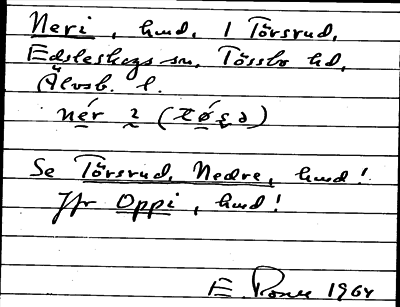 Neri, hmd. 1 Törsrud,
Edsleskogs sn, Tössbo hd,
Älvsb. l.
nér 2 (tó̤ʂə)
Se Törsrud, Nedre, hmd!
Jfr Oppi, hmd!
E. 1964